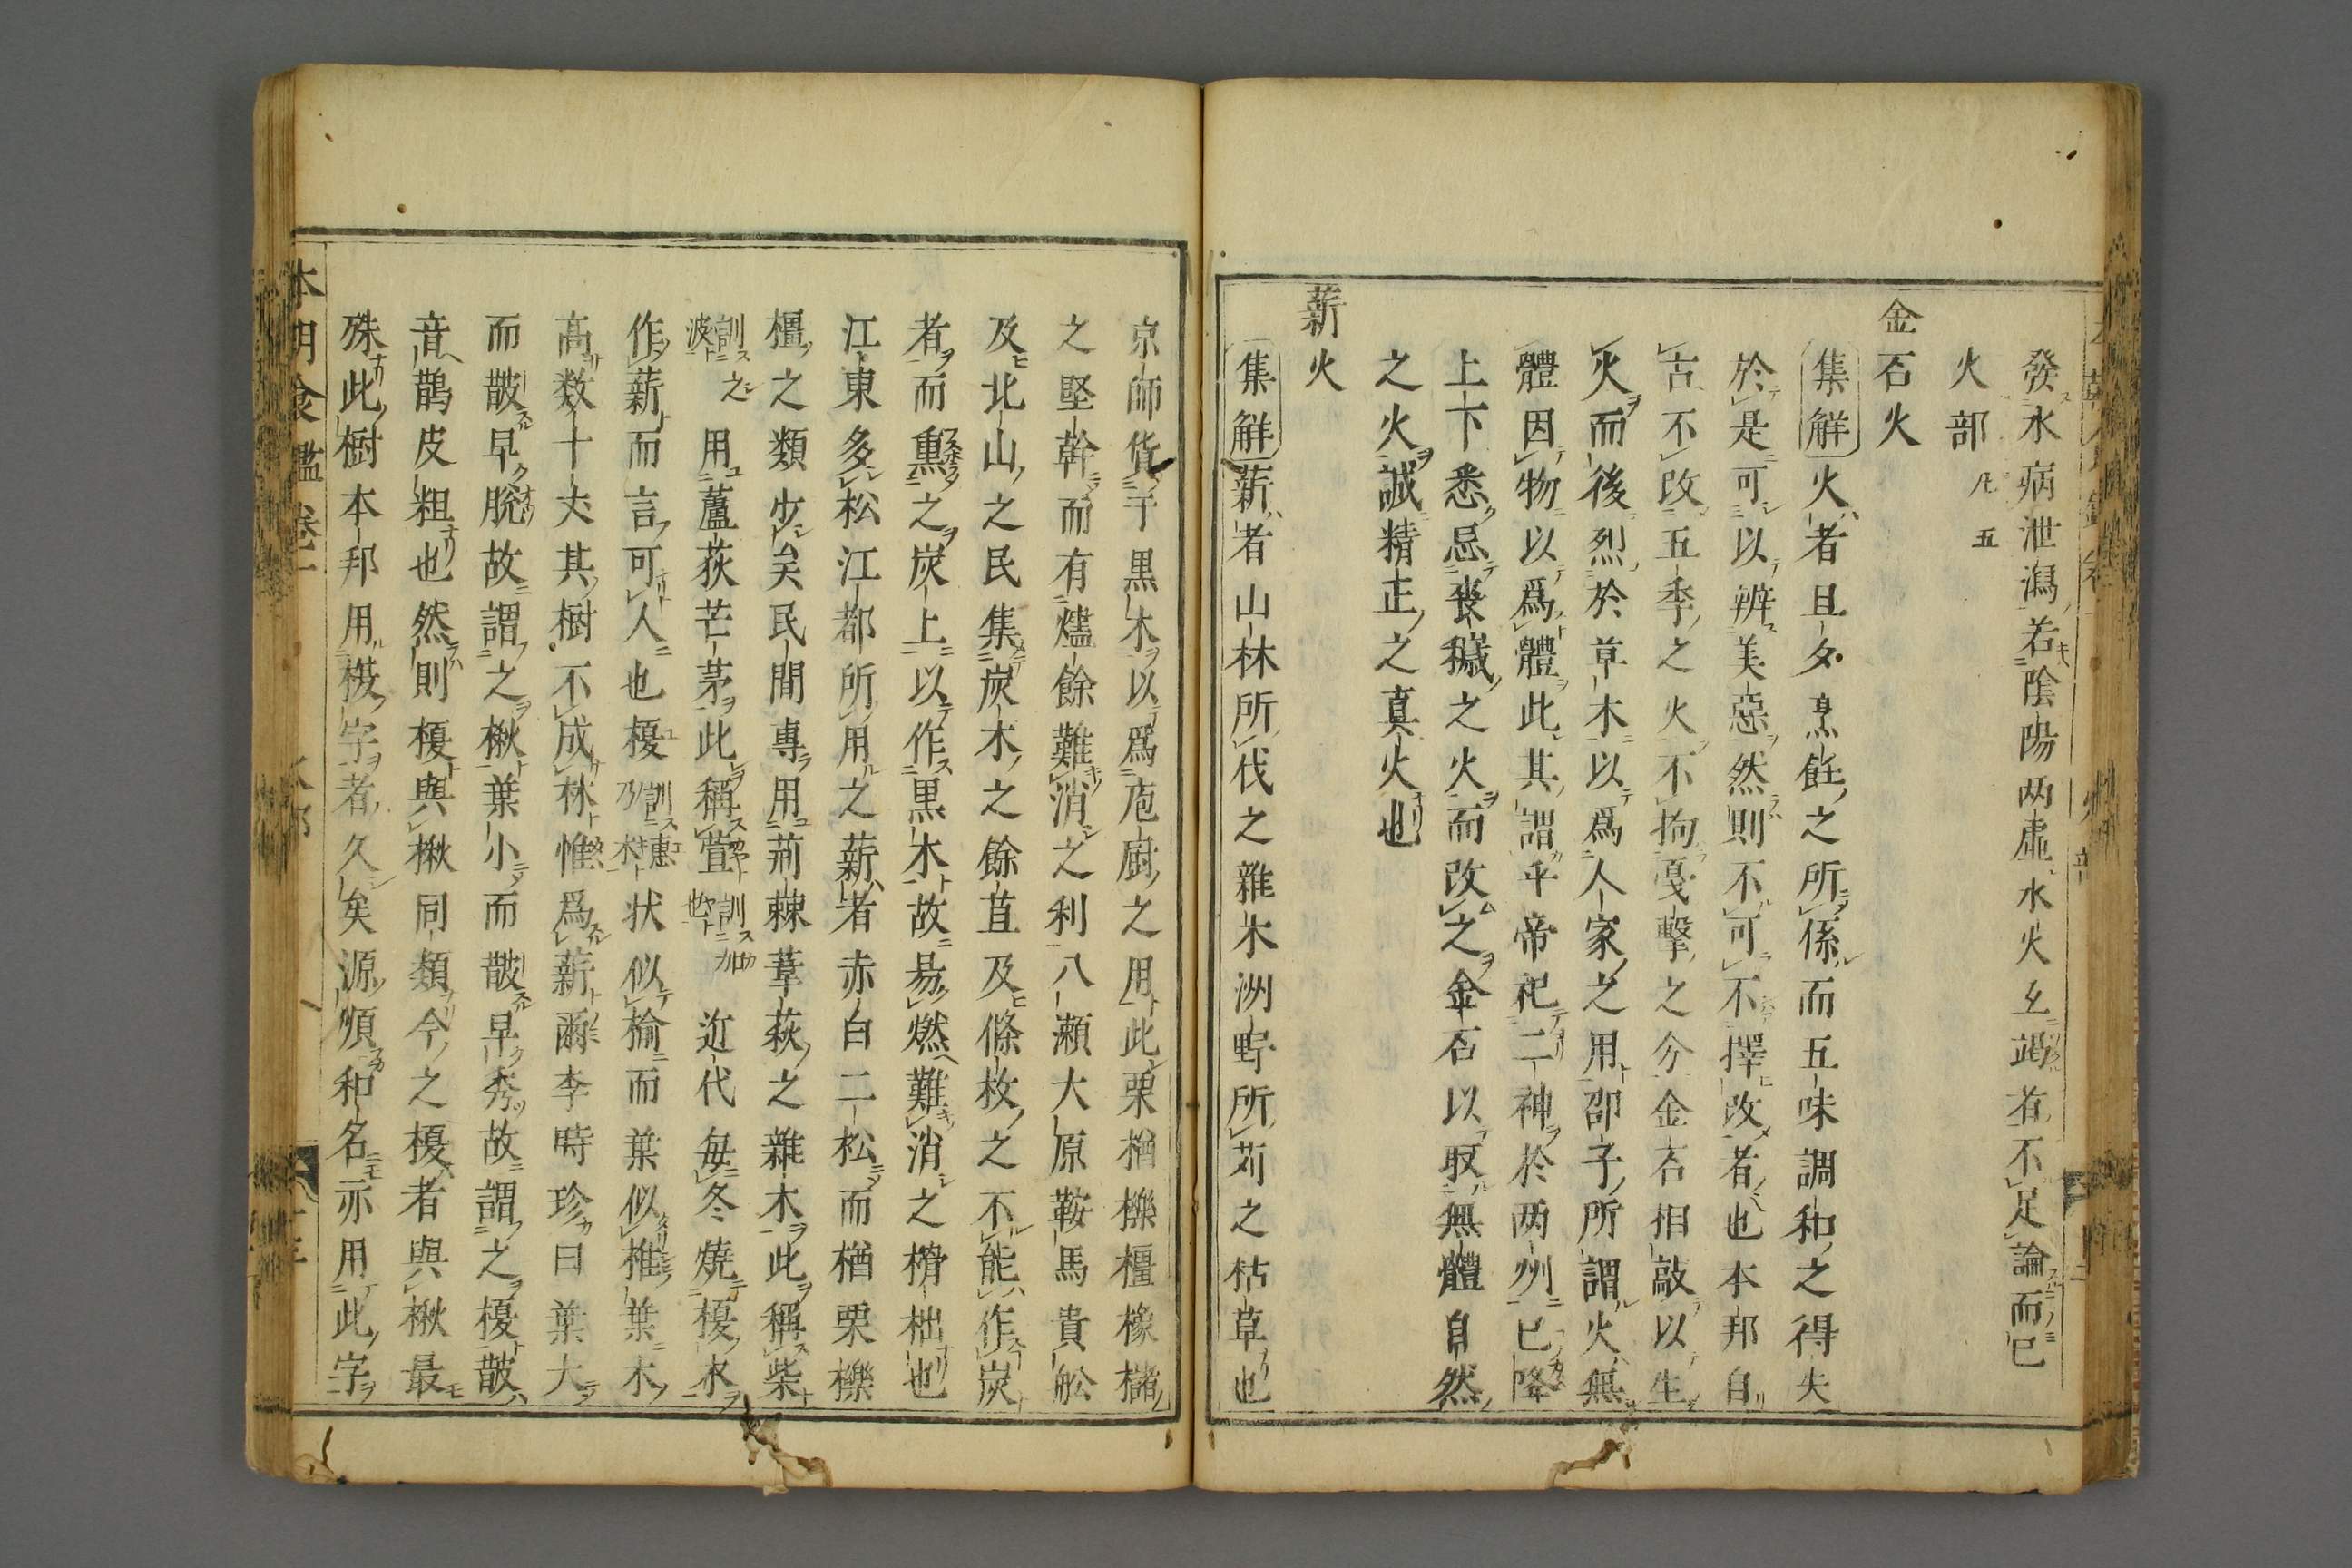 發水病泄瀉若陰陽両虛水火乞竭者不足論而已
火部凡五
金石火
集解火者旦夕烹飪之所係而五味調和之得失
於是可以辨美惡然則不可不擇改者也本邦自
古不改五季之火不拘戞擊之分金石相敲以生
火而後烈於草木以爲人家之用卲子所謂火無
體因物以爲體此其謂乎帝祀二神於两州已降
上下悉忌喪穢之火而改之金石以取無體自然
之火誠精正之真火也
薪火
集解薪者山林所伐之雜木洲野所苅之枯草也
京師貨于黒木以爲庖厨之用此栗楢櫟橿橡櫧
之堅幹而有燼餘難消之利八瀬大原鞍馬貴舩
及北山之民集炭木之餘苴及條枚之不能作炭
者而熏之炭上以作黒木故易燃難消之榾柮也
江東多松江都所用之薪者赤白二松而楢栗櫟
橿之類少矣民間專用荊棘葦萩之雜木此稱柴
訓波之用蘆荻芒茅此稱萱訓加也近代毎冬燒榎木
作薪而言可人也榎訓惠乃木状似楡而葉似椎葉木
高数十丈其樹不成林惟爲薪爾李時珍曰葉大
而皵早脱故謂之楸葉小而皵早秀故謂之榎皵
音鵲皮粗也然則榎與楸同類今之榎者與楸最
殊此樹本邦用榎字者久矣源順和名亦用此字
本朝食鑑 卷一